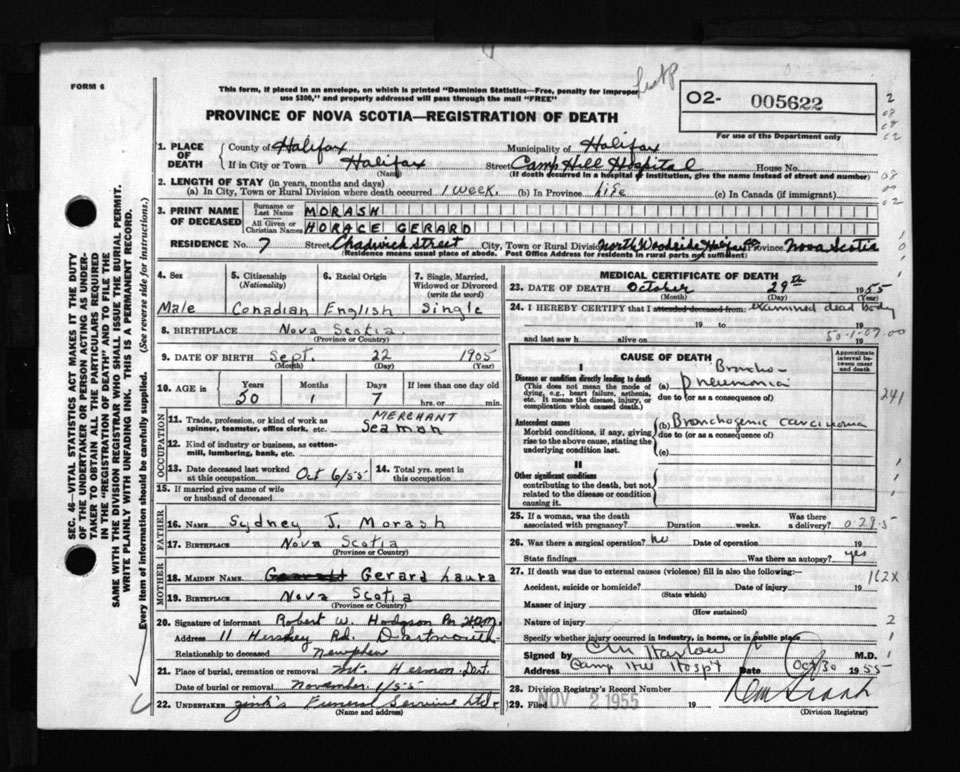 FORM 6
This form, if placed in an envelope, on which is printed "Dominion Statistics—Free, penalty for improper
use $300," and property addressed will pass through the mail "FREE"
PROVINCE OF NOVA SCOTIA—REGISTRATION OF DEATH
O2- 005622
For use of the Department only
SEC. 46—VITAL STATISTICS ACT MAKES IT THE DUTY
OF THE UNDERTAKER OR PERSON ACTING AS UNDER-
TAKER TO OBTAIN ALL THE PARTICULARS REQUIRED
IN THE "REGISTRATION OF DEATH" AND TO FILE THE
SAME WITH THE DIVISION REGISTRAR WHO SHALL ISSUE THE BURIAL PERMIT.
WRITE PLAINLY WITH UNFADING INK. THIS IS A PERMANENT RECORD.
Every item of information should be carefully supplied. (See reverse side for instructions.)
1. PLACE OF DEATH
County of Halifax Municipality of Halifax
If in City or Town Halifax Street Camp Hill Hospital House No.
(Name) (If death occurred in a hospital or institution, give the name instead of street and number)
2. LENGTH OF STAY (in years, months and days)
(a) In City, Town or Rural Division where death occurred 1 week. (b) In Province Life (c) In Canada (if immigrant)
3. PRINT NAME OF DECEASED
Surname or Last Name MORASH
All Given or Christian Names HORACE GERARD
RESIDENCE No. 7 Street Chadwick Street City, Town or Rural Division North Woodside Halifax Co Province Nova Scotia
(Residence means usual place of abode. Post Office Address for residents in rural parts not sufficient)
4. Sex Male
5. Citizenship (Nationality) Canadian
6. Racial Origin English
7. Single, Married, Widowed or Divorced (write the word) Single
8. BIRTHPLACE Nova Scotia.
(Province or Country)
9. DATE OF BIRTH Sept. 22 1905
(Month) (Day) (Year)
10. AGE in Years 50 Months 1 Days 7 If less than one day old hrs. or min.
OCCUPATION
11. Trade, profession, or kind of work as spinner, teamster, office clerk, etc. MERCHANT Seaman
12. Kind of industry or business, as cotton-mill, lumbering, bank, etc.
13. Date deceased last worked at this occupation Oct 6/55
14. Total yrs. spent in this occupation
15. If married give name of wife or husband of deceased
FATHER
16. NAME Sydney J. Morash
17. BIRTHPLACE Nova Scotia
(Province or Country)
MOTHER
18. MAIDEN NAME Gerard Laura
19. BIRTHPLACE Nova Scotia
(Province or Country)
20. Signature of informant Robert W. Hodgson
Address 11 Hershey Rd. Dartmouth
Relationship to deceased Nephew
21. Place of burial, cremation or removal Mt. Hermon Dart.
Date of burial or removal November 1/55
22. UNDERTAKER Zink's Funeral Service Ltd.
(Name and address)
MEDICAL CERTIFICATE OF DEATH
23. DATE OF DEATH October 29th 1955
(Month) (Day) (Year)
24. I HEREBY CERTIFY that I attended deceased from: examined dead body
19 to 19
and last saw h alive on 19
50-1-07.00
CAUSE OF DEATH
Approximate interval between onset and death
I
Disease or condition directly leading to death
(This does not mean the mode of dying, e.g., heart failure, asthenia, etc. It means the disease, injury, or complication which caused death.)
(a) Broncho-pneumonia
due to (or as a consequence of)
241
Antecedent causes
Morbid conditions, if any, giving rise to the above cause, stating the underlying condition last.
(b) Bronchogenic carcinoma
due to (or as a consequence of)
(c)
II
Other significant conditions
contributing to the death, but not related to the disease or condition causing it.
25. If a woman, was the death associated with pregnancy? Duration weeks. Was there a delivery? 0-29-5
26. Was there a surgical operation? no Date of operation 19
State findings Was there an autopsy? yes
27. If death was due to external causes (violence) fill in also the following:—
162X
Accident, suicide or homicide? Date of injury 19
(State which)
Manner of injury
(How sustained)
Nature of injury
Specify whether injury occurred in industry, in home, or in public place
Signed by CM Harlow M.D.
Address Camp Hill Hosp't Date Oct 30 1955
28. Division Registrar's Record Number
29. Filed NOV 2 1955 19
(Division Registrar)